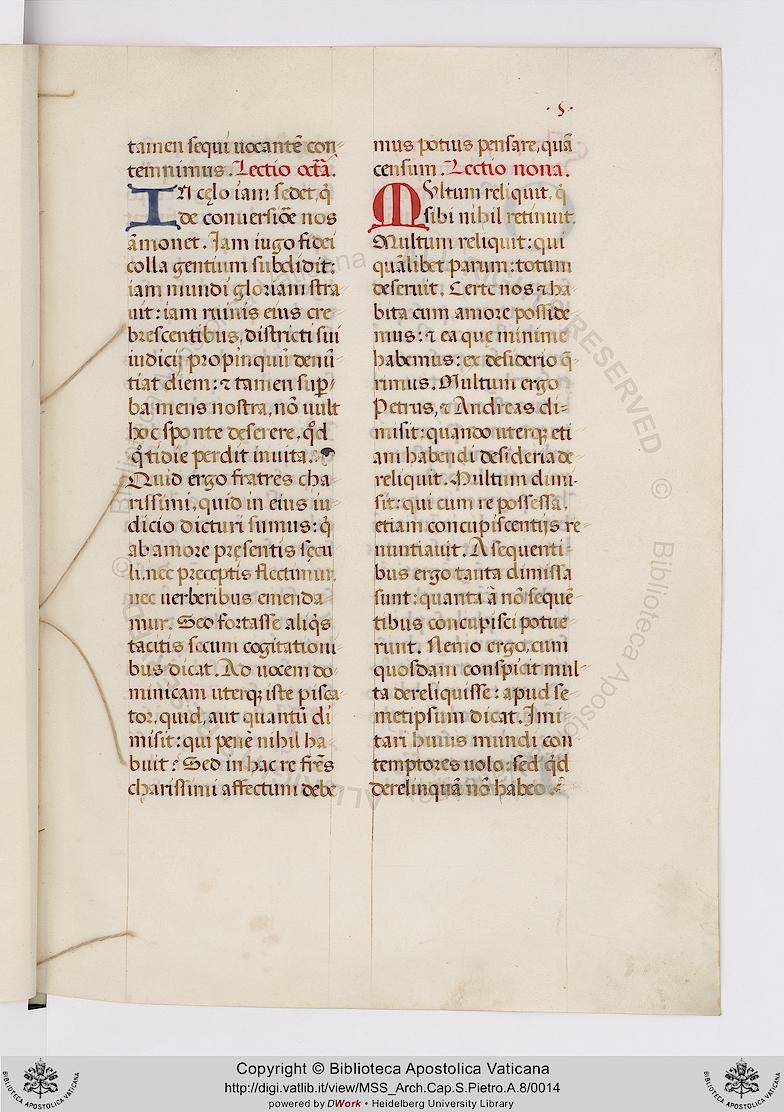 · 5 ·
tamen sequi uocantē con
temnimus. Lectio octā.
IN cęlo iam sedet, q̇
de conuersiōe nos
āmonet. Jam iugo fidei
colla gentium subdidit:
iam mundi gloriam stra
uit: iam ruinis eius cre
brescentibus, districti sui
iudicij propinquū denū
tiat diem: ⁊ tamen suꝑ
ba mens nostra, nō uult
hoc sponte deserere, qd̓
q̊tidie perdit inuita.
Quid ergo fratres cha
rissimi, quid in eius iu
dicio dicturi sumus: q̇
ab amore pręsentis sęcu
li, nec pręceptis flectimur,
nec uerberibus emenda
mur. Sed fortasse aliq̇s
tacitis secum cogitationi
bus dicat. Ad uocem do
minicam uterqꝫ iste pisca
tor, quid, aut quantū di
misit: qui penę nihil ha
buit? Sed in hac re frēs
charissimi affectum debe
mus potius pensare, quā
censum. Lectio nona.
MUltum reliquit, q̇
sibi nihil retinuit.
Multum reliquit: qui
quālibet parum: totum
deseruit. Certe nos ⁊ ha
bita cum amore posside
mus: ⁊ ea que minime
habemus: ex desiderio q̄
rimus. Multum ergo
Petrus, ⁊ Andreas di=
misit: quando uterqꝫ eti
am habendi desideria de
reliquit. Multum dimi-
sit: qui cum re possessa,
etiam concupiscentijs re
nuntiauit. A sequenti-
bus ergo tanta dimissa
sunt: quanta ā nō sequē
tibus concupisci potue
runt. Nemo ergo, cum
quosdam conspicit mul
ta dereliquisse: apud se
metipsum dicat. Imi
tari huius mundi con
temptores uolo: sed qd̓
derelinquā nō habeo.
© Biblioteca Apostolica Vaticana
ALL RIGHTS RESERVED
BIBLIOTECA APOSTOLICA VATICANA
Copyright © Biblioteca Apostolica Vaticana
http://digi.vatlib.it/view/MSS_Arch.Cap.S.Pietro.A.8/0014
powered by DWork • Heidelberg University Library
BIBLIOTECA APOSTOLICA VATICANA